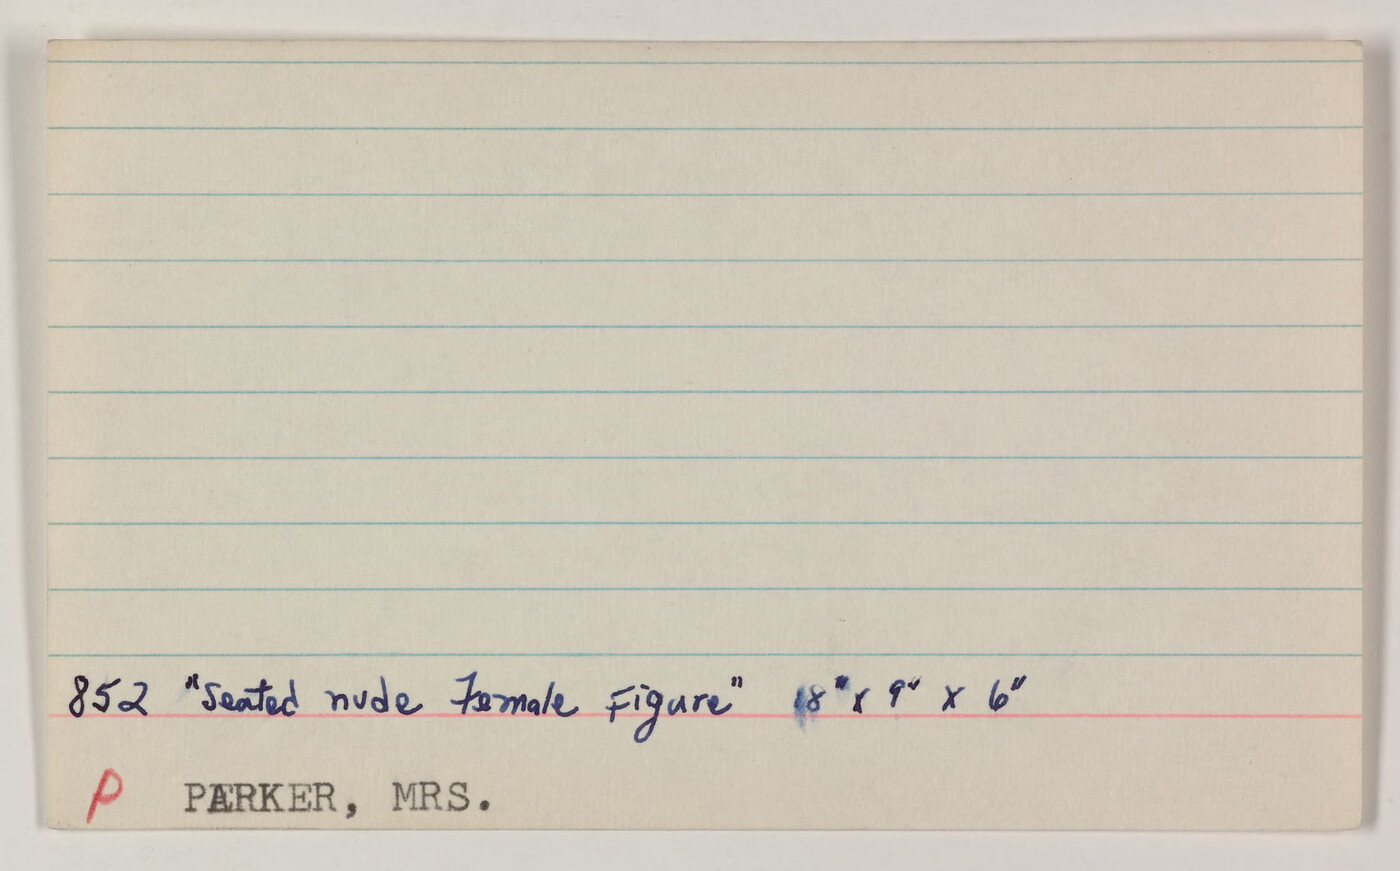 852 "Seated nude Female Figure" 18" x 9" x 6"
P PARKER, MRS.